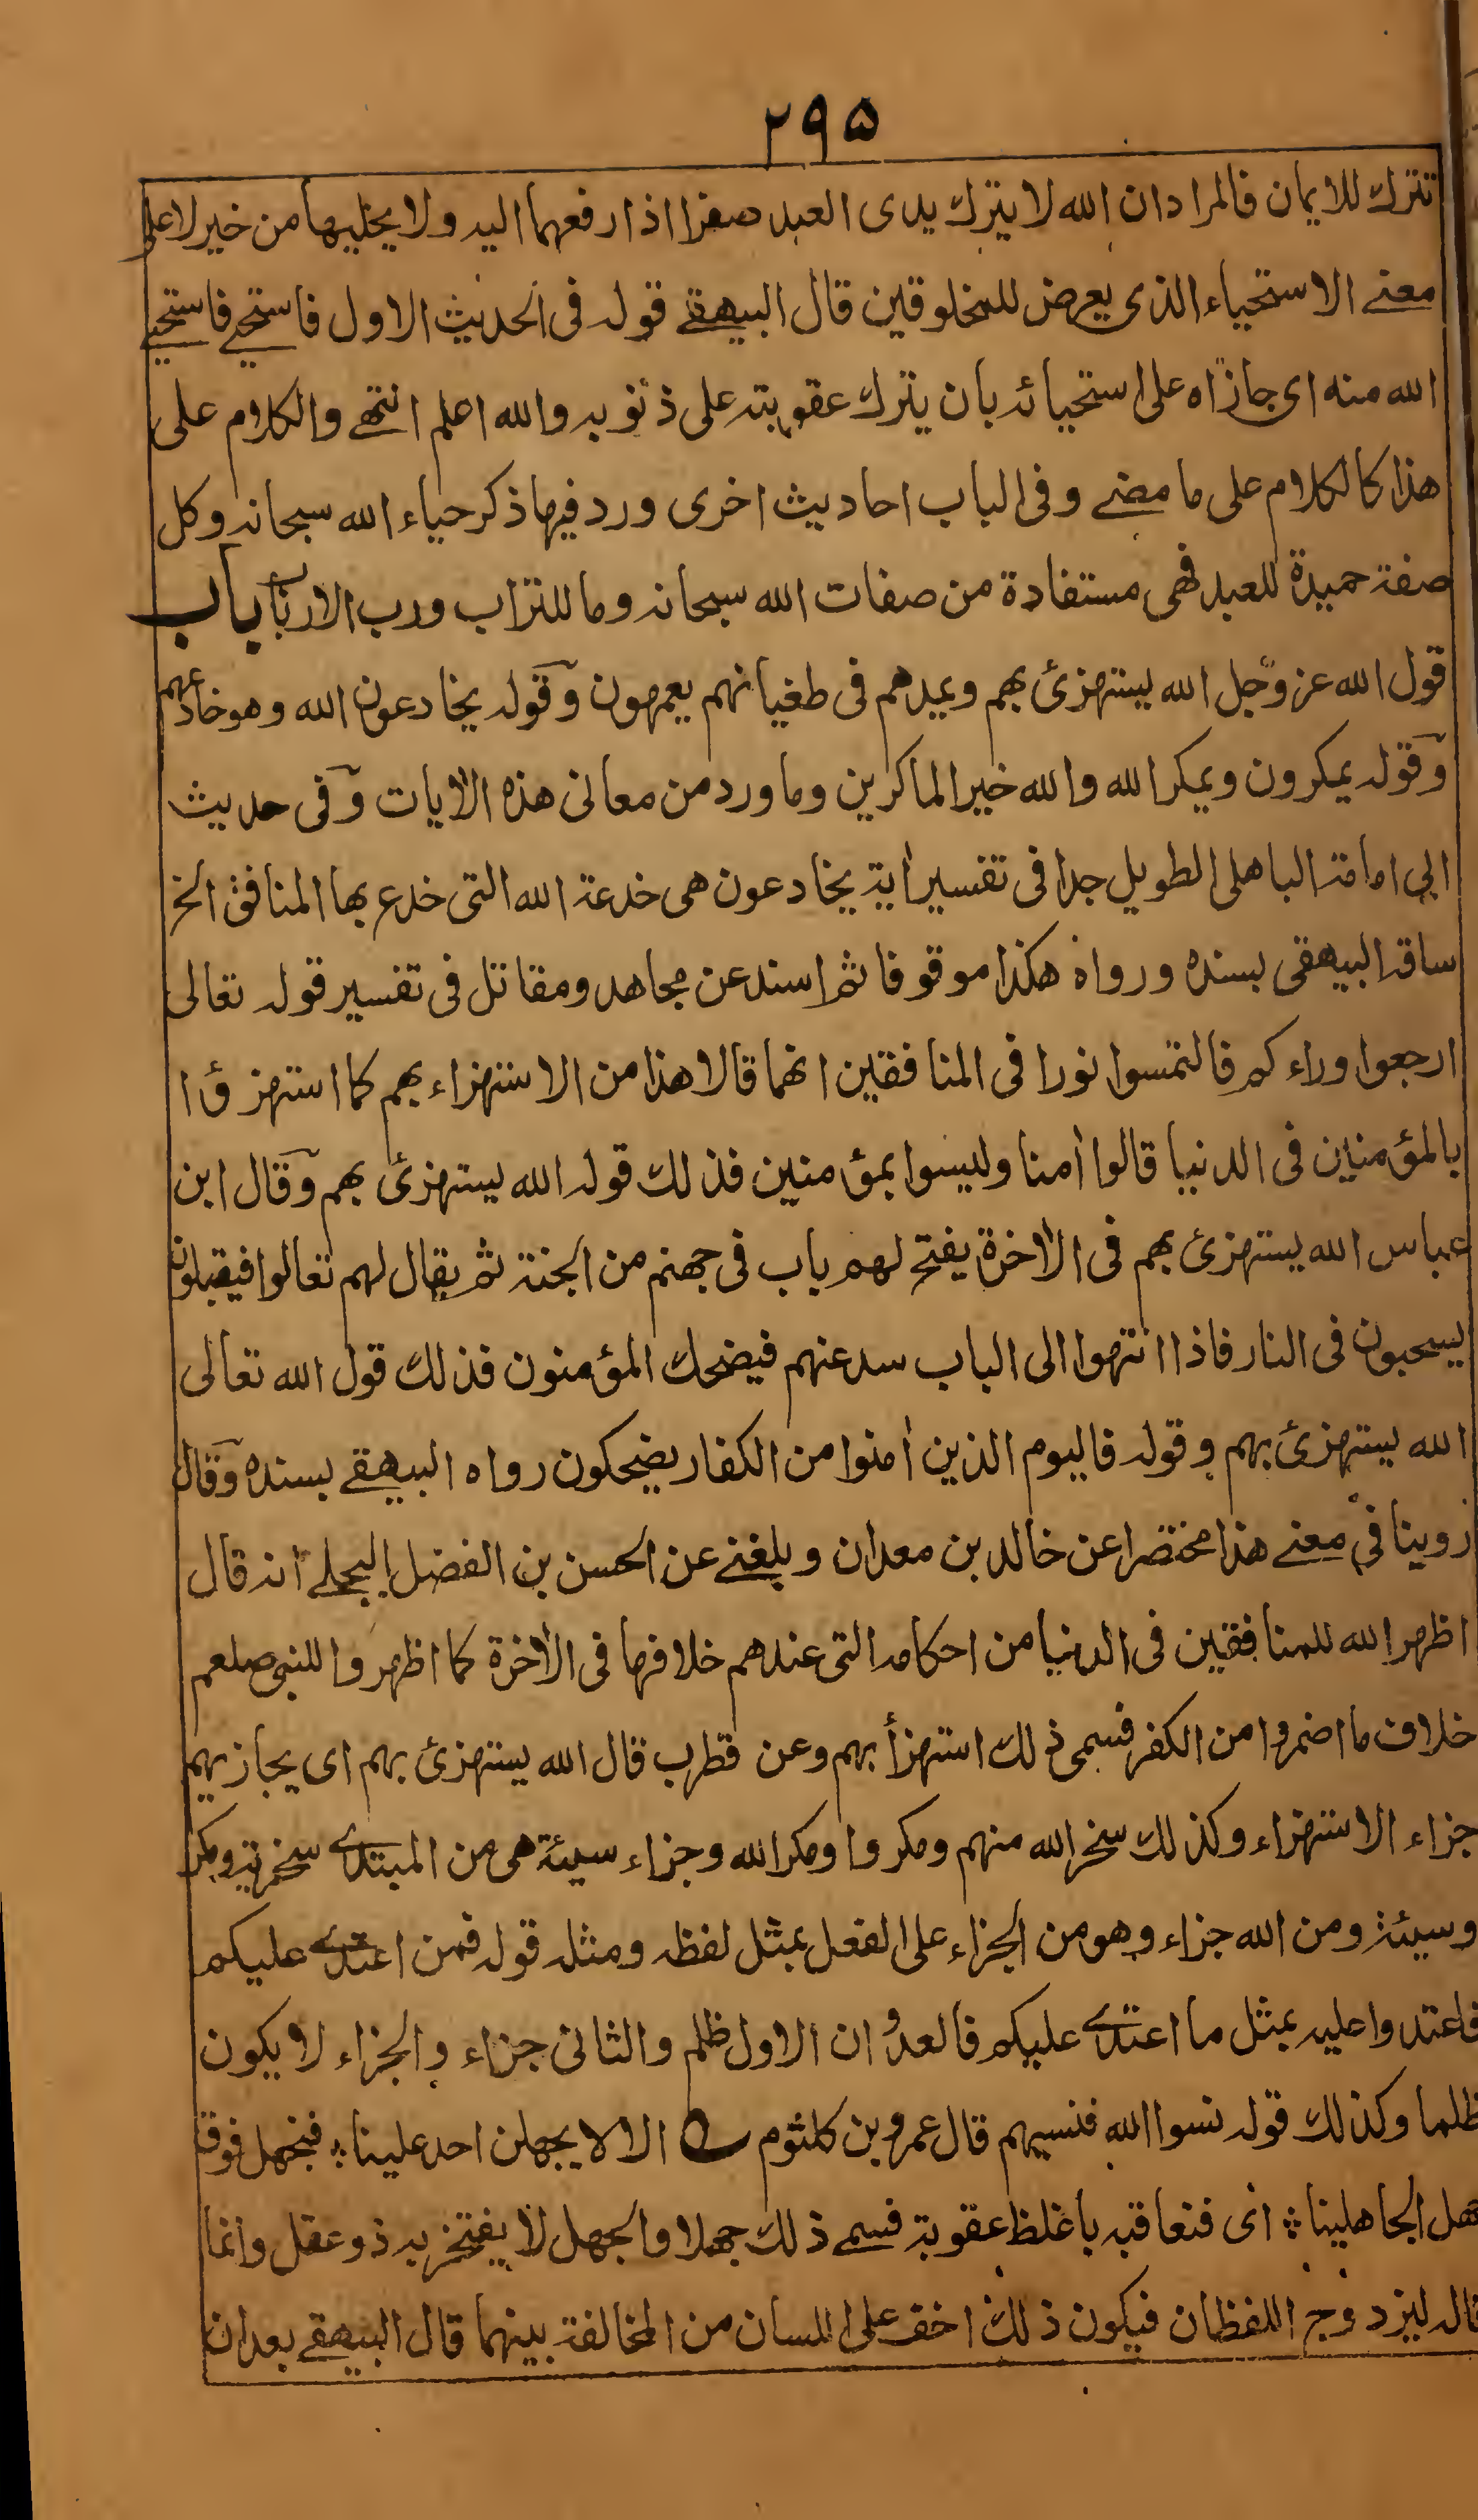 ۲۹۵
تترك للايمان فالمراد ان الله لا يترك يدى العبد صفرا اذا رفعهما اليه ولا يخليها من خير لا على
معنے الاستحياء الذى يعرض للمخلوقين قال البيهقے قوله فى الحديث الاول فاستحيے فاستحيے
الله منه اى جازاه على استحيائه بان يترك عقوبته على ذنوبه والله اعلم انتهے والكلام على
هذا كالكلام على ما مضے وفى الباب احاديث اخرى ورد فيها ذكر حياء الله سبحانه وكل
صفة حميدة للعبد فهى مستفادة من صفات الله سبحانه وما للتراب ورب الارباب باب
قول الله عز وجل الله يستهزئ بهم ويمدهم فى طغيانهم يعمهون وقوله يخادعون الله وهو خادعهم
وقوله يمكرون ويمكر الله والله خير الماكرين وما ورد من معانى هذه الاٰيات وفى حديث
ابى امامة الباهلى الطويل جدا فى تفسير اٰية يخادعون هى خدعة الله التى خدع بها المنافق الخ
ساقه البيهقى بسنده ورواه هكذا موقوفا ثم اسند عن مجاهد ومقاتل فى تفسير قوله تعالى
ارجعوا وراءكم فالتمسوا نورا فى المنافقين انهما قالا هذا من الاستهزاء بهم كما استهزؤا
بالمؤمنين فى الدنيا قالوا اٰمنا وليسوا بمؤمنين فذلك قوله الله يستهزئ بهم وقال ابن
عباس الله يستهزئ بهم فى الاٰخرة يفتح لهم باب فى جهنم من الجنة ثم يقال لهم تعالوا فيقبلون
يسحبون فى النار فاذا انتهوا الى الباب سد عنهم فيضحك المؤمنون فذلك قول الله تعالى
الله يستهزئ بهم وقوله فاليوم الذين اٰمنوا من الكفار يضحكون رواه البيهقے بسنده وقال
روينا فى معنے هذا مختصرا عن خالد بن معدان وبلغنے عن الحسن بن الفضل البجلے انه قال
اظهر الله للمنافقين فى الدنيا من احكامه التى عندهم خلافها فى الاٰخرة كما اظهروا للنبى صلعم
خلاف ما اضمروا من الكفر فسمى ذلك استهزأ بهم وعن قطرب قال الله يستهزئ بهم اى يجازيهم
جزاء الاستهزاء وكذلك سخر الله منهم ومكروا ومكر الله وجزاء سيئة هى من المبتدے سخرية ومكر
وسيئة ومن الله جزاء وهو من الجزاء على الفعل بمثل لفظه ومثله قوله فمن اعتدے عليكم
فاعتدوا عليه بمثل ما اعتدے عليكم فالعدوان الاول ظلم والثانى جزاء والجزاء لا يكون
ظلما وكذلك قوله نسوا الله فنسيهم قال عمرو بن كلثوم الا لا يجهلن احد علينا فنجهل فوق
جهل الجاهلينا اى فنعاقبه باغلظ عقوبة فسمے ذلك جهلا والجهل لا يفتخر به ذو عقل وانما
قاله ليزدوج اللفظان فيكون ذلك اخف على اللسان من المخالفة بينهما قال البيهقے بعد ان